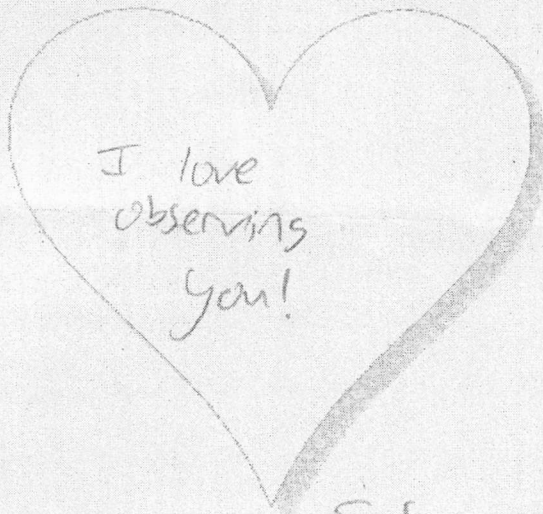 I love
observing
you!